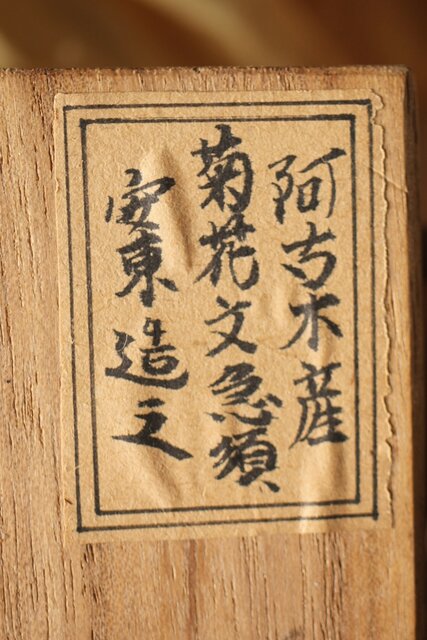 阿古木産
菊花文急須
安東造之